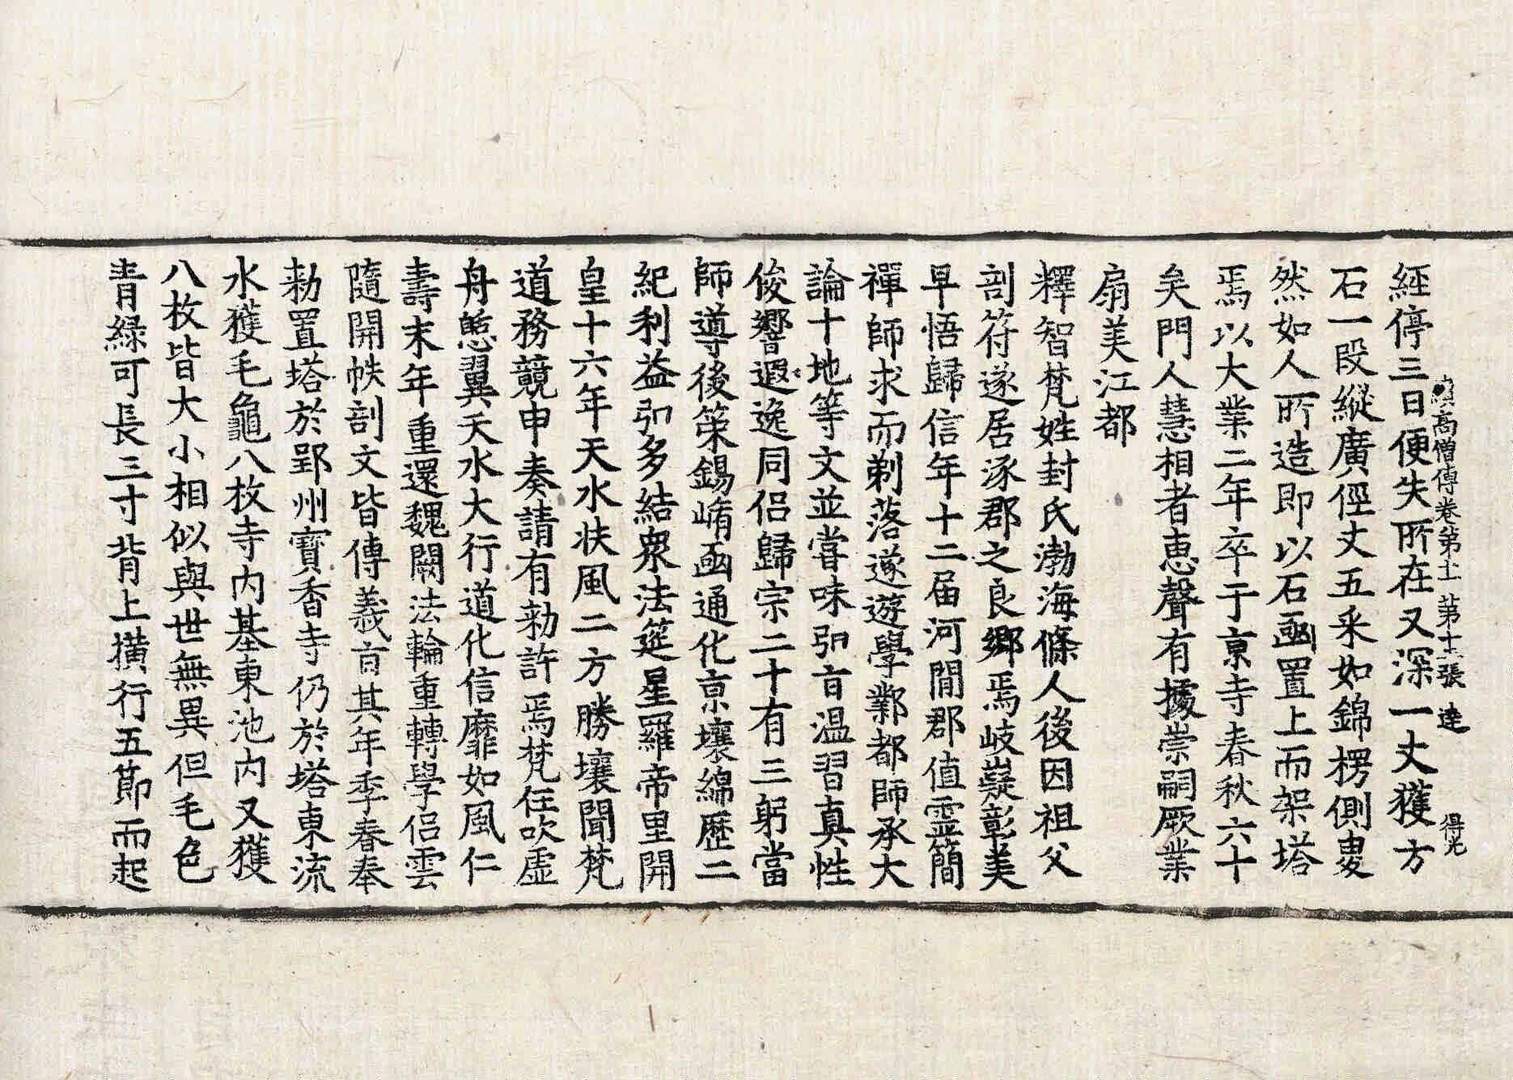 經停三日便失所在又深一丈獲方
續高僧傳卷第十一 第十二張 達 得光
石一段縱廣徑丈五采如錦楞側叟
然如人所造即以石函置上而架塔
焉以大業二年卒于京寺春秋六十
矣門人慧相者惠聲有據崇嗣厥業
扇美江都
釋智梵姓封氏渤海條人後因祖父
剖符遂居涿郡之良鄉焉岐嶷彰美
早悟歸信年十二届河間郡值靈簡
禪師求而剃落遂遊學鄴都師承大
論十地等文並嘗味弘旨温習真性
俊響遐逸同侣歸宗二十有三躬當
師導後策錫崤函通化京壤綿歷二
紀利益弘多結衆法筵星羅帝里開
皇十六年天水扶風二方勝壤聞梵
道務競申奏請有勑許焉梵任吹虚
舟憩翼天水大行道化信靡如風仁
壽末年重還魏闕法輪重轉學侣雲
隨開帙剖文皆傳義旨其年季春奉
勑置塔於郢州寶香寺仍於塔東流
水獲毛龜八枚寺内基東池内又獲
八枚皆大小相似與世無異但毛色
青綠可長三寸背上橫行五節而起